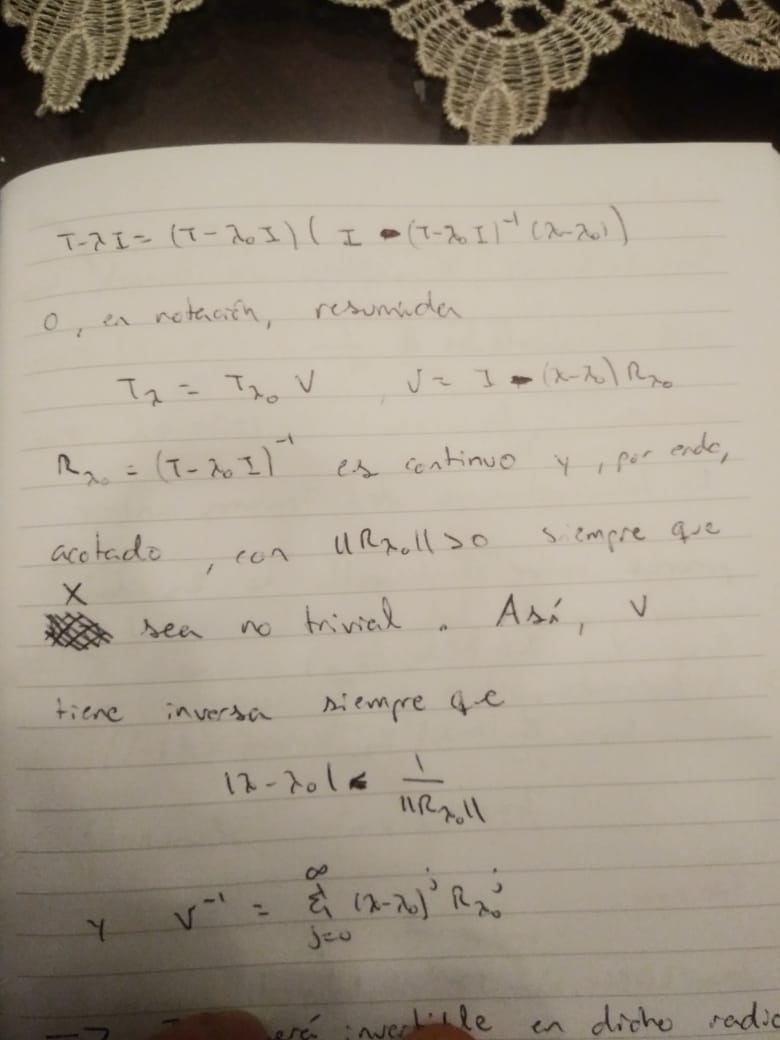 T-λI = (T-λ₀I)( I - (T-λ₀I)⁻¹ (λ-λ₀))
O, en notación, resumida
T_λ = T_λ₀ V , V = I - (λ-λ₀) R_λ₀
R_λ₀ = (T-λ₀I)⁻¹ es continuo y, por ende,
acotado, con ||R_λ₀|| > 0 siempre que
X
sea no trivial. Así, V
tiene inversa siempre que
|λ-λ₀| < 1/||R_λ₀||
y V⁻¹ = Σ_{j=0}^{∞} (λ-λ₀)ʲ R_λ₀ʲ
invertible en dicho radio